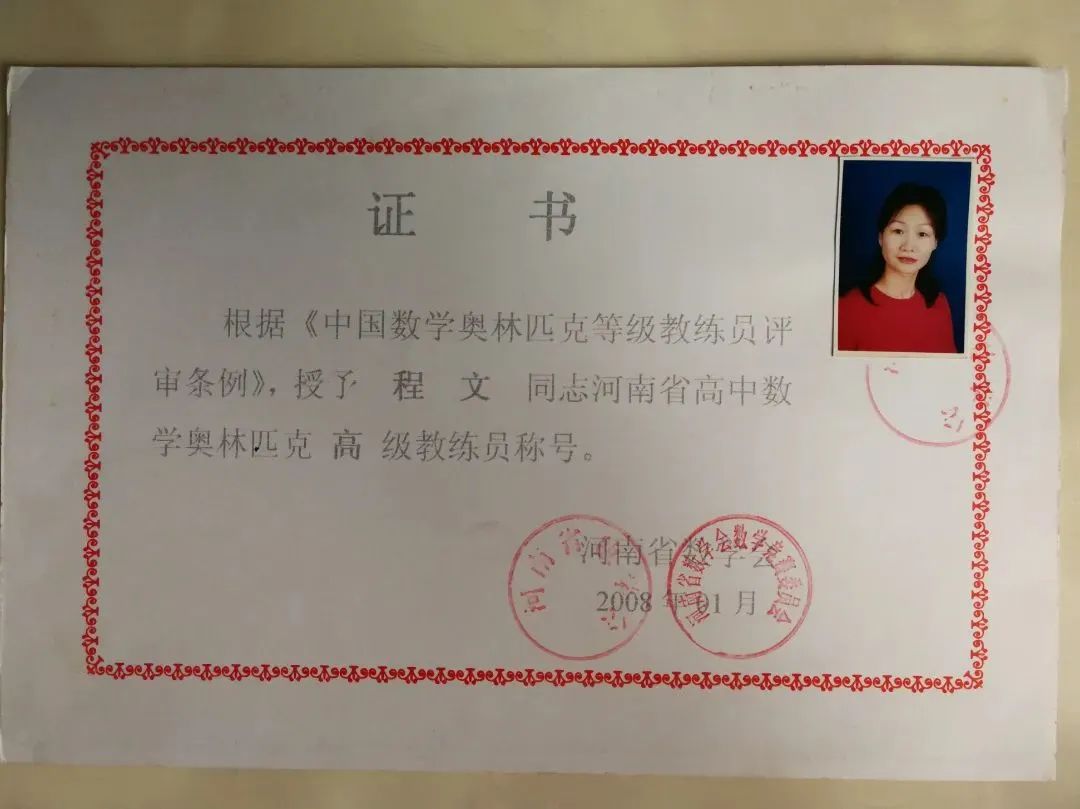 证 书
根据《中国数学奥林匹克等级教练员评
审条例》，授予 程 文 同志河南省高中数
学奥林匹克 高 级教练员称号。
河南省数学会
2008 年 01 月
河南省数学会
河南省数学会数学竞赛委员会